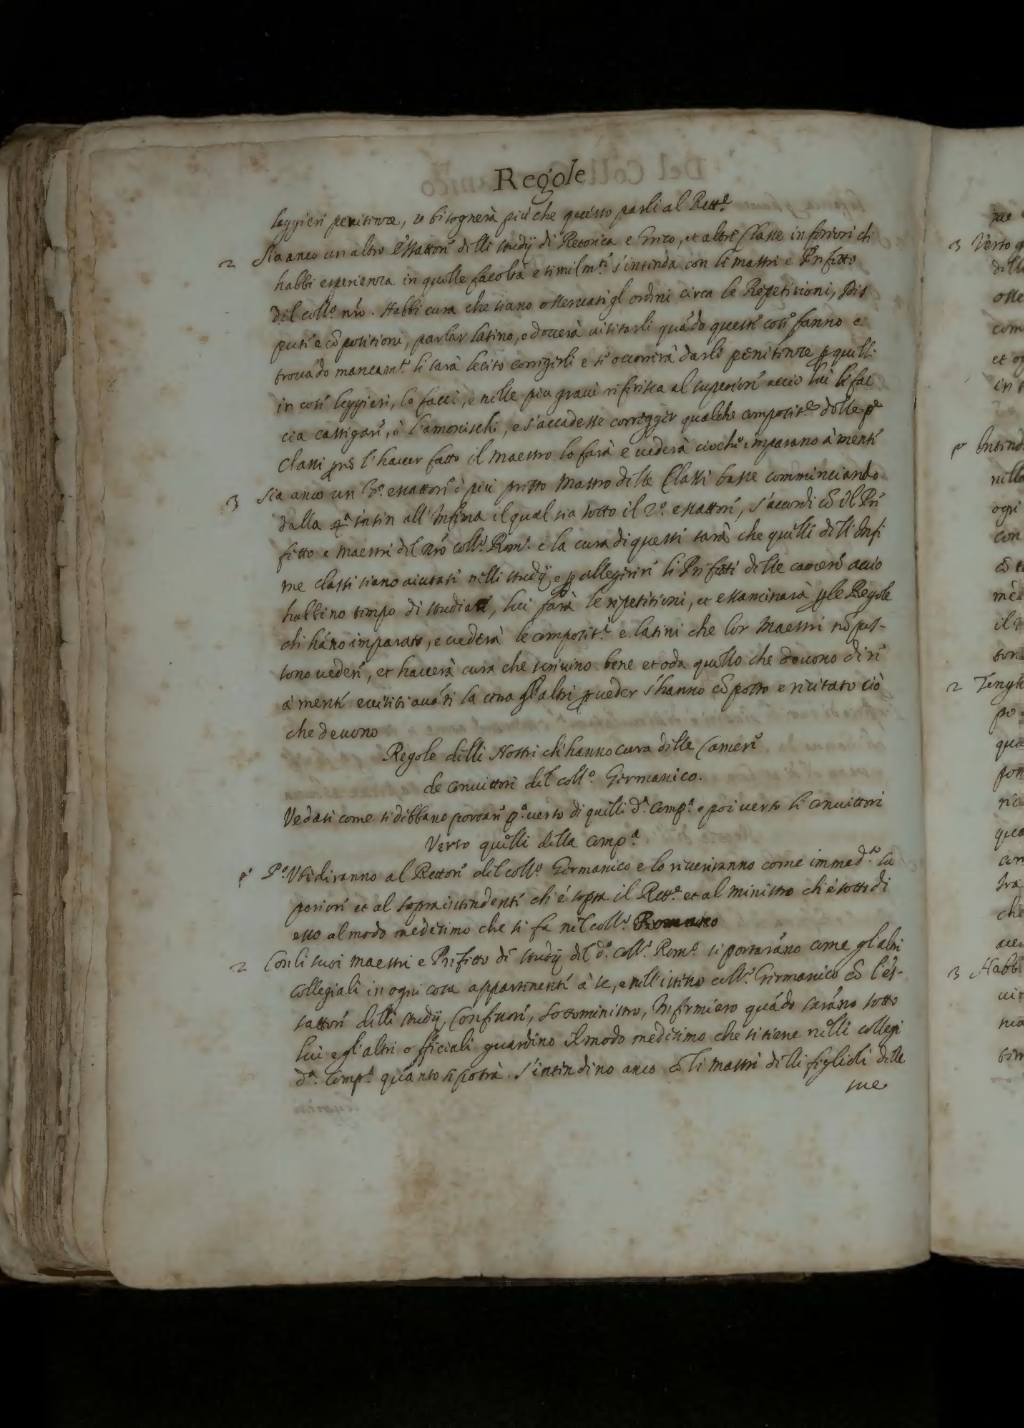 Regole
leggieri penitenze, se bisognerà più che questo, parli al Rett.e
2 Sia anco un altro essattore delli studij di Retorica e Greco, et altre Classe inferiori ch
habbi esperienza in quelle facoltà e similm.te s'intenda con li mastri e Prefetto
del coll.o nro. Habbi cura che siano osservati gl ordini circa le Repetitioni, Dis
puti e cõpositioni, parlar latino, e doverà visitarli quãdo questi cosi fanno e
trovãdo mancam.ti li sarà lecito corregirli e se occorrirà darli penitenze p quelli
in cosi leggieri, le facci, e nelle più gravi riferisca al superiore accio lui li fac
cia castigare, ò l'amonischi, e s'accadesse corregger qualche composit.e delle p.e
Classi p.a l'haver fatto il maestro lo farà e vederà ciochi imparano à menti
3 Sia anco un 3.o essattore ò più presto Mastro delle Classi basse comminciando
dalla 4.a insin all'Infima il qual sia sotto il 2.o essattore, s'accordi cõ il Pre
fetto e Maestri del nro coll.o Rom.o e la cura di questi sarà che quelli dell Infi
me classi siano aiutati nelli studij, e p allegerire li Prefetti delle camere accio
habbino tempo di studiare, lui farà le repetitioni, et essaminarà p le Regole
chi hãno imparato, e vederà le composit.e e latini che lor Maestri nõ pos-
sono vedere, et haverà cura che scrivino bene et oda quello che devono dire
à menti e visiti avãti la cena gl altri p veder s'hanno cõposto e recitato ciò
che devono
Regole delli Nostri ch'hanno cura delle Camere
de convittori del coll.o Germanico.
Vedasi come si debbano portare p.a verso di quelli d.a Comp.a e poi verso li convittori
Verso quelli della Comp.a
p.o P.o Ubediranno al Rettore del coll.o Germanico e lo riveriranno come immed.to su
periore et al sopraintendente ch'è sopra il Rett.e et al ministro ch'è sotto di
esso al modo medesimo che si fa nel coll.o Romano
2 Con li suoi maestri e Prefetto de studij del d.o coll.o Rom.o si portarãno come gl altri
collegiali in ogni cosa appartenente à se, e nell'istesso coll.o Germanico cõ l'es-
sattore delli studij, Confessori, Sottoministro, Infirmiero quãdo sarãno sotto
lui e gl'altri officiali guardino il modo medesimo che si tiene nelli collegi
d.a Comp.a quanto si potrà. S'intendino anco cõ li mastri delli figlioli delle
sue